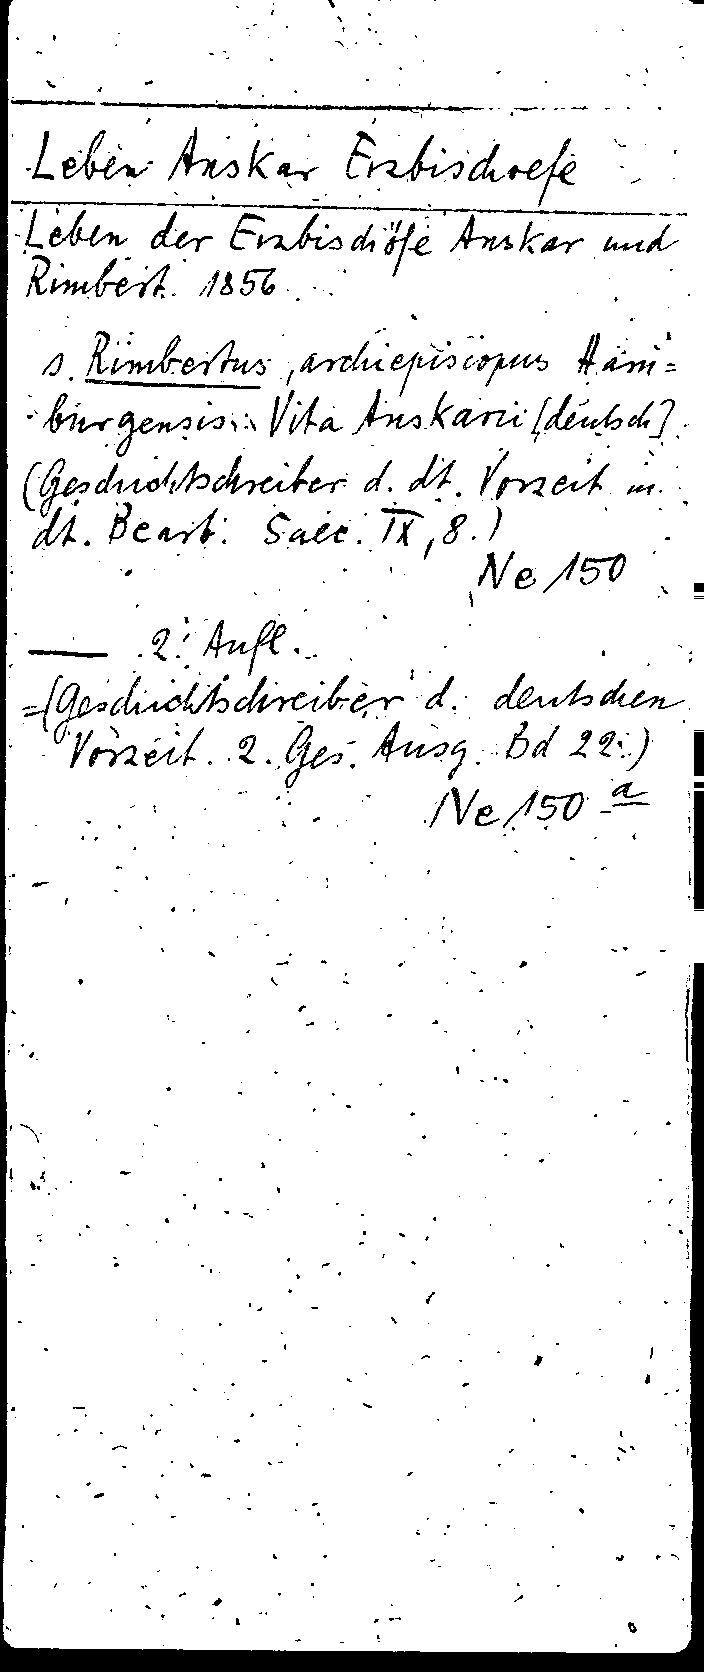 Leben Anskar Erzbischoefe
Leben der Erzbischöfe Anskar und
Rimbert. 1856
s. Rimbertus, archiepiscopus Ham=
burgensis: Vita Anskarii [deutsch]
(Geschichtschreiber d. dt. Vorzeit in
dt. Bearb. Saec. IX, 8.)
Ne 150
— 2. Aufl.
=(Geschichtschreiber d. deutschen
Vorzeit. 2. Ges. Ausg. Bd 22.)
Ne 150 a